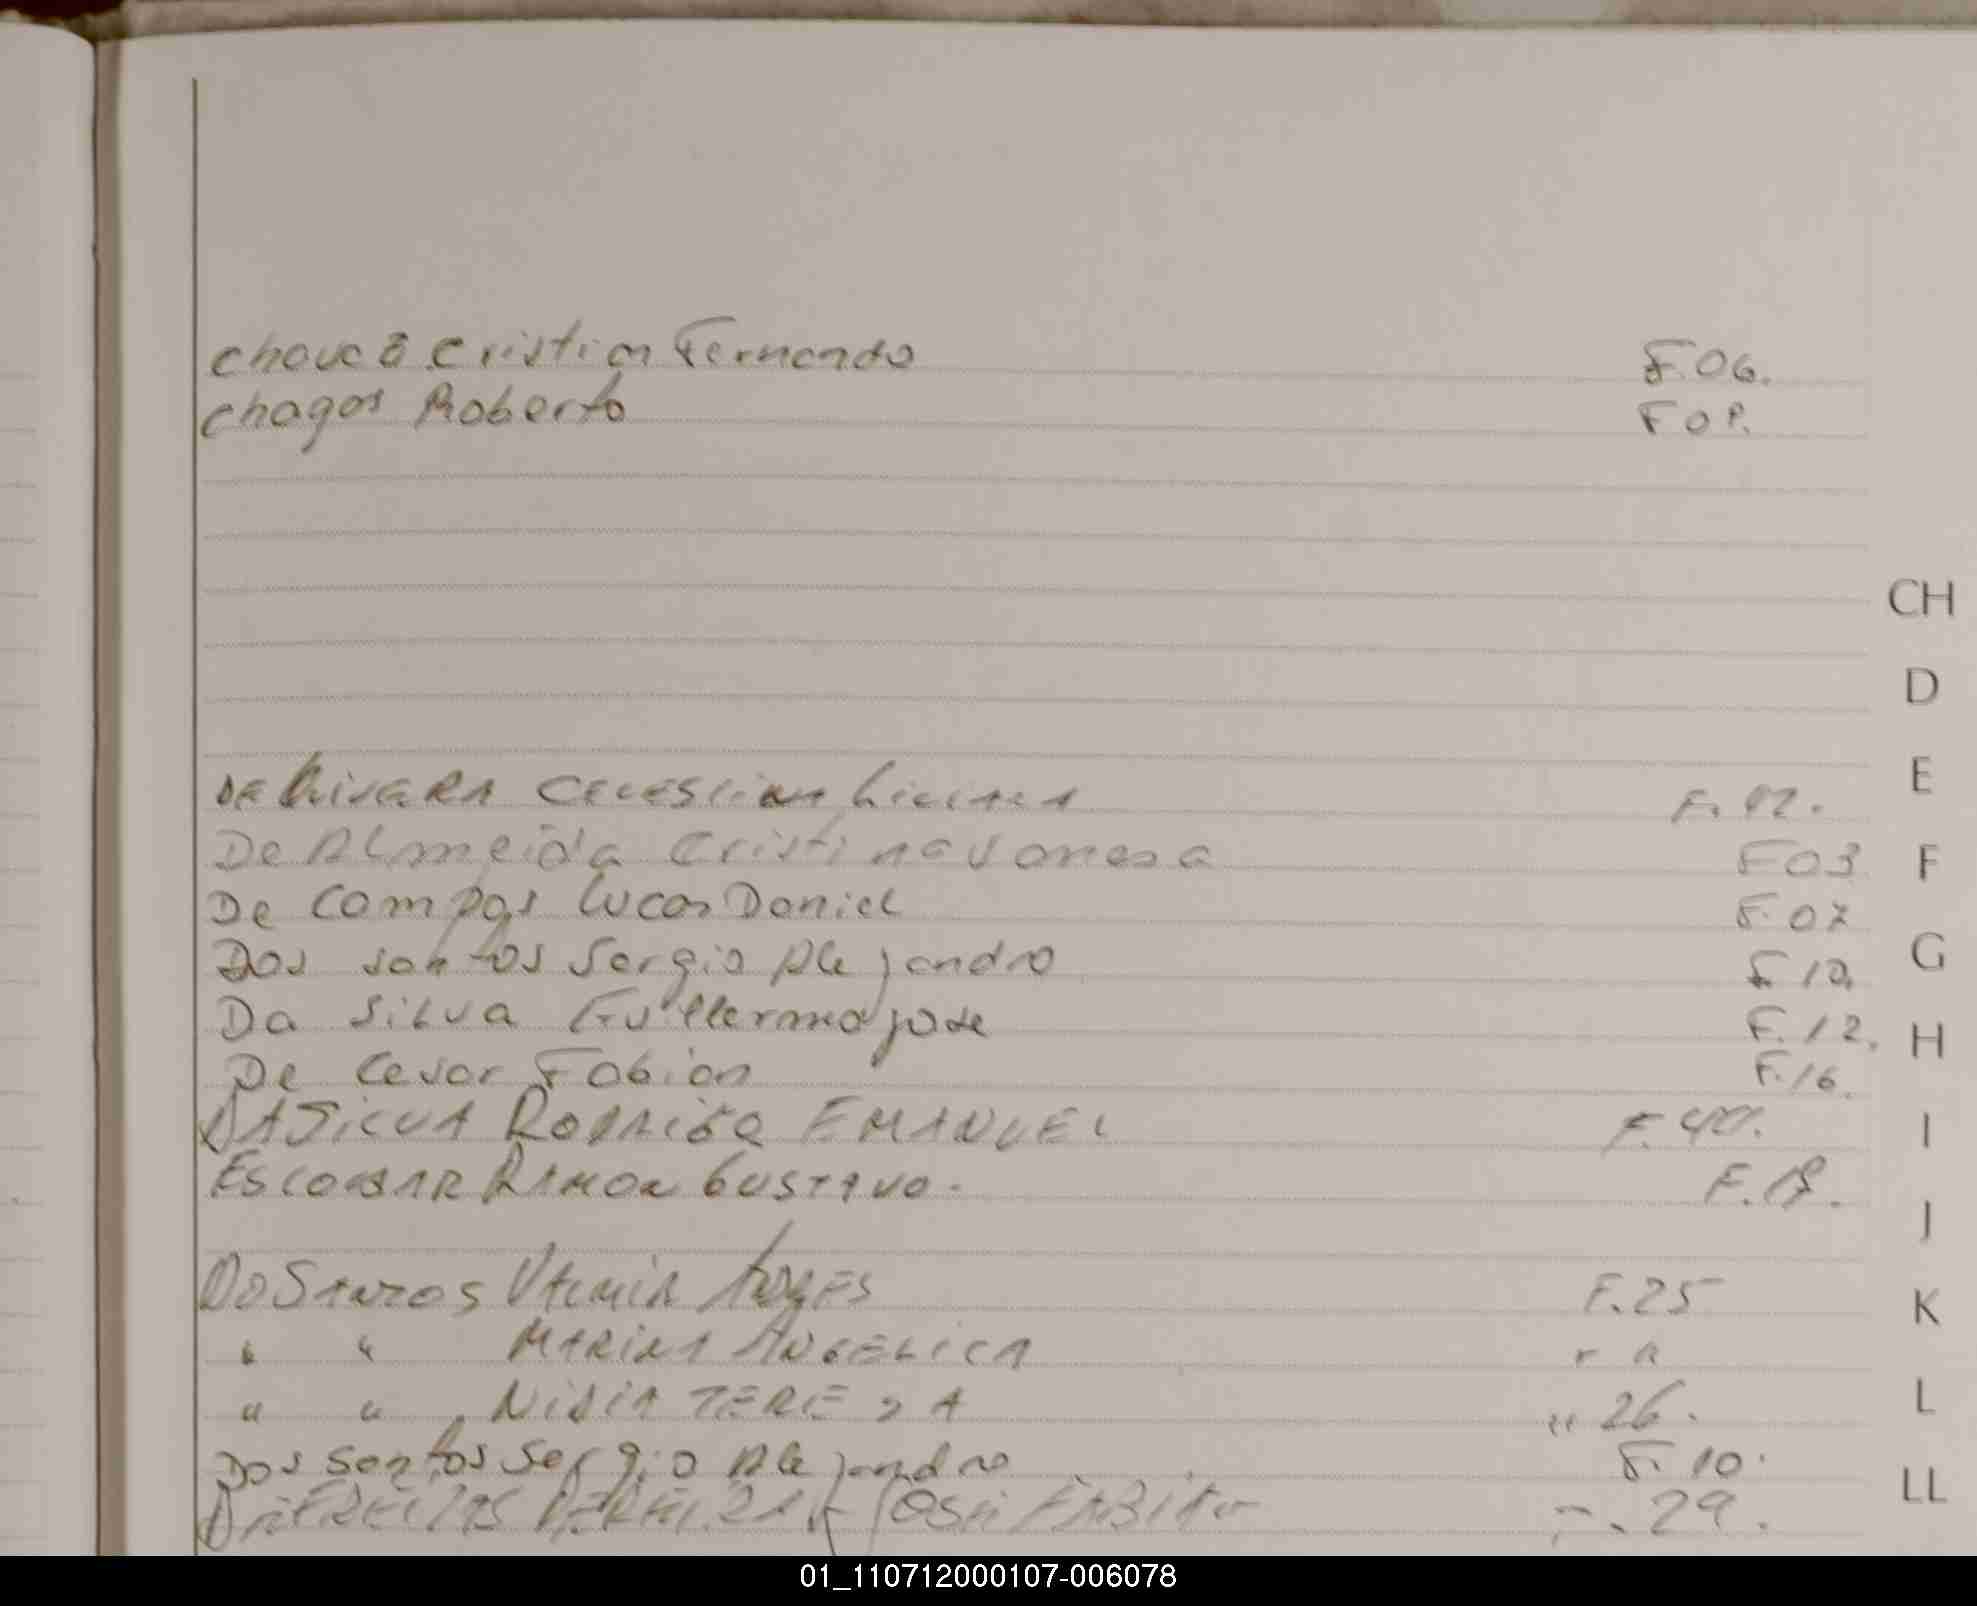 Cristian Fernando F 06.
Chagas Roberto F 08.
CH
D
E
De F. 42.
De Almeida Cristina Vanesa F 03 F
De Campos Lucas Daniel F. 07
G
Dos santos Sergio Alejandro F 10,
Da Silva Guillermo jose F. 12. H
De Cesar Fabian F. 16.
DA SiLVA RODRIGO EMANUEL F. 40. I
ESCOBAR RAMON GUSTAVO. F. 18.
J
Do SANTOS F. 25 K
" " MARINA ANGELICA " "
" " NIDIA TEREZA " 26. L
Dos Santos Sergio Alejandro F. 10.
LL
DE FREITAS PEREIRA JOSE FABIAN . 29.
01_110712000107-006078